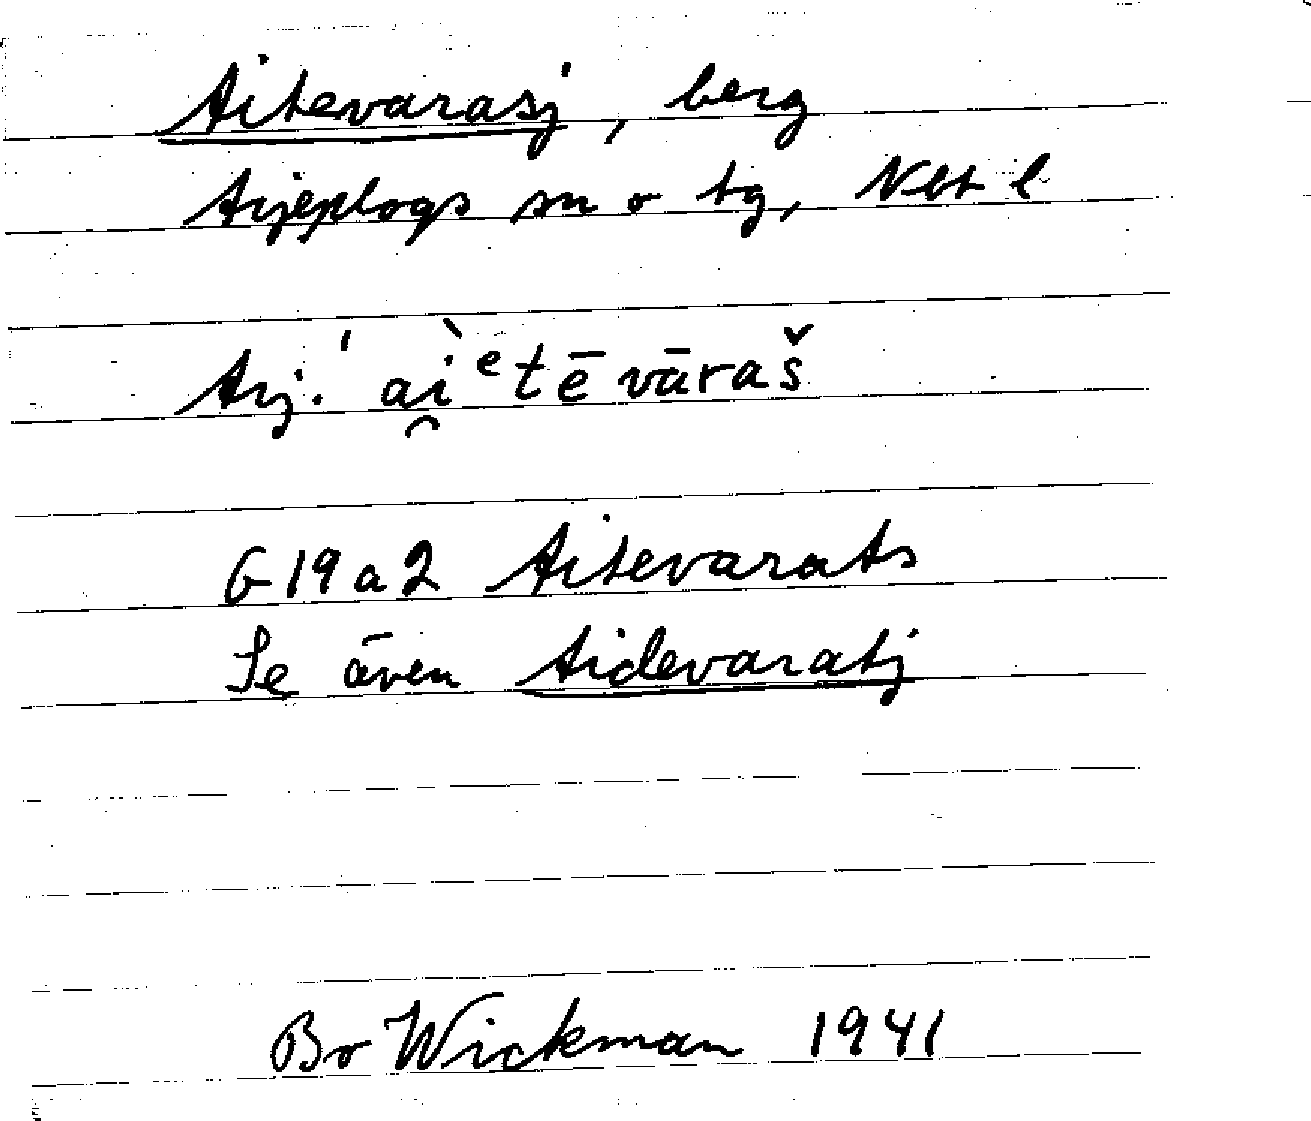 Aitevarasj, berg
Arjeplogs sn o tg, Nbt l
Arj. ˈaì̯ᵉtē vāraš
G19a2 Aitevarats
Se även Aidevaratj
Bo Wickman 1941